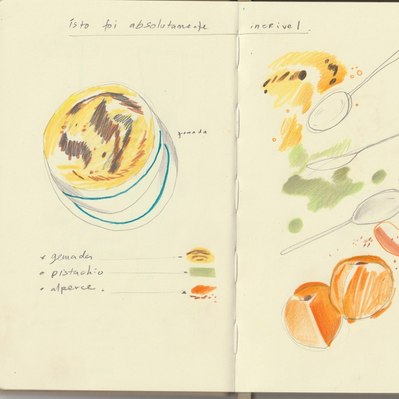 isto foi absolutamente incrivel.
gemada
gemada
pistachio
alperce.